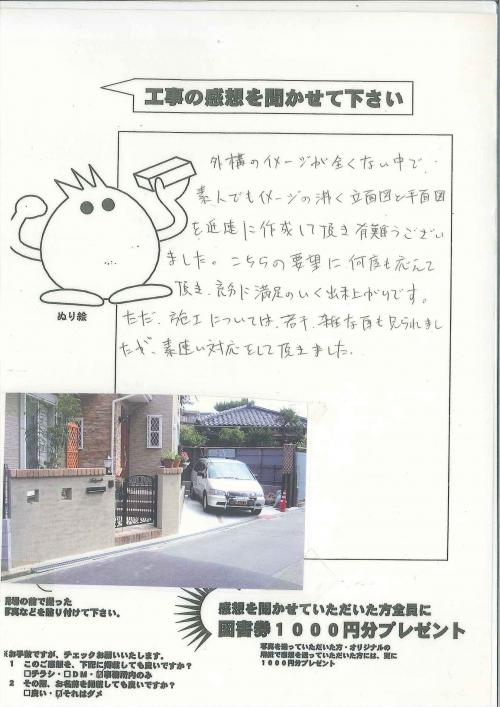 工事の感想を聞かせて下さい
外構のイメージが全くない中で、
素人でもイメージの沸く立面図と平面図
を迅速に作成して頂き有難うござい
ました。こちらの要望に何度も応えて
頂き、非常に満足のいく出来上がりです。
ただ、施工については、若干、雑な面も見られまし
たが、素速い対応をして頂きました。
ぬり絵
現場の前で撮った
写真などを貼り付けて下さい。
感想を聞かせていただいた方全員に
図書券1000円分プレゼント
写真を送っていただいた方・オリジナルの
用紙で感想を送っていただいた方には、更に
1000円分プレゼント
※お手数ですが、チェックお願いいたします。
1 このご感想を、下記に掲載しても良いですか？
□チラシ・□DM・☑事務所内のみ
2 その際、お名前を掲載しても良いですか？
□良い・☑それはダメ